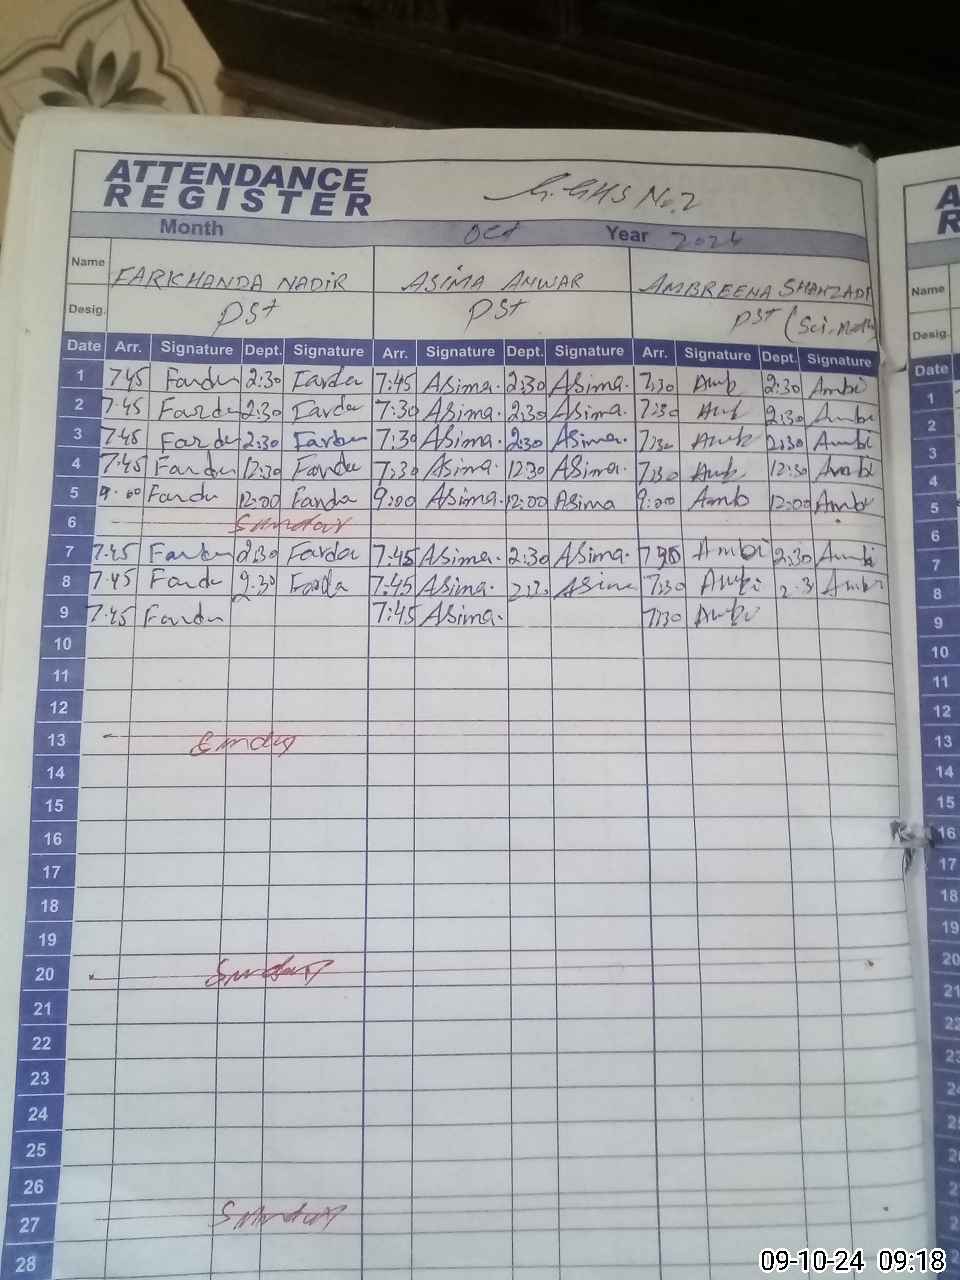 ATTENDANCE
REGISTER
G.GHS No.2
Month Oct Year 2024
Name FARKHANDA NADIR ASIMA ANWAR AMBREENA SHAHZADI
Desig. PST PST PST (Sci.Math)
Date Arr. Signature Dept. Signature Arr. Signature Dept. Signature Arr. Signature Dept. Signature
1 7:45 Farda 2:30 Farda 7:45 ASima. 2:30 ASima. 7:30 Amb 2:30 Ambi
2 7:45 Farda 2:30 Farda 7:30 ASima. 2:30 ASima. 7:30 Amb 2:30 Ambi
3 7:45 Farda 2:30 Farda 7:30 ASima. 2:30 ASima. 7:30 Amb 2:30 Ambi
4 7:45 Farda 12:30 Farda 7:30 ASima. 12:30 ASima. 7:30 Amb 12:30 Ambi
5 9:00 Farda 12:00 Farda 9:00 ASima. 12:00 ASima 9:00 Amb 12:00 Ambi
6 Sunday
7 7:45 Farda 2:30 Farda 7:45 ASima. 2:30 ASima. 7:30 Ambi 2:30 Ambi
8 7:45 Farda 2:30 Farda 7:45 ASima. ASima 7:30 Ambi Ambi
9 7:45 Farda 7:45 ASima. 7:30 Ambi
10
11
12
13 Sunday
14
15
16
17
18
19
20 Sunday
21
22
23
24
25
26
27 Sunday
28
A
R
Name
Desig.
Date
1
2
3
4
5
6
7
8
9
10
11
12
13
14
15
16
17
18
19
20
21
22
09-10-24 09:18